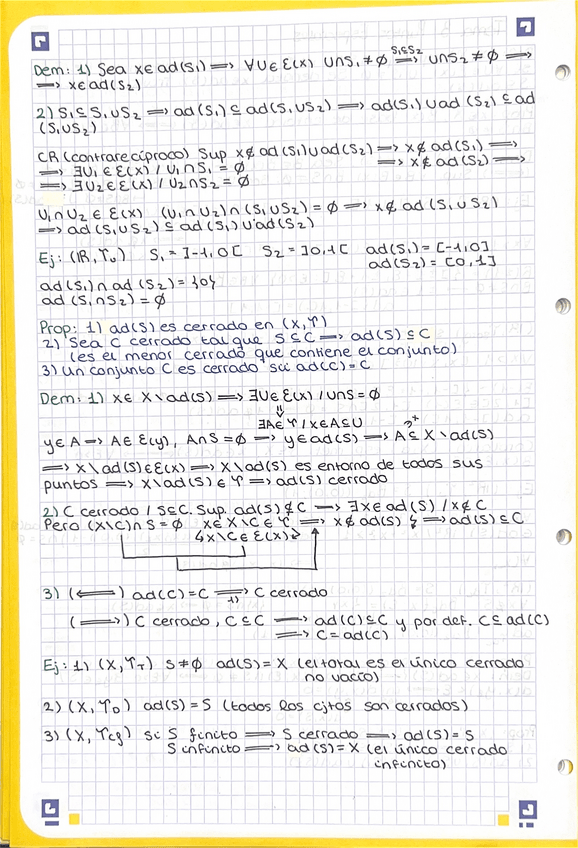 Dem: 1) Sea x∈ad(S₁) ⟹ ∀U∈Ɛ(x) U∩S₁≠∅ ⟹ U∩S₂≠∅ ⟹
S₁⊆S₂
⟹ x∈ad(S₂)
2) S₁⊆S₁∪S₂ ⟹ ad(S₁)⊆ad(S₁∪S₂) ⟹ ad(S₁)∪ad(S₂)⊆ad
(S₁∪S₂)
CR (contrarecíproco) Sup x∉ad(S₁)∪ad(S₂) ⟹ x∉ad(S₁) ⟹
⟹ x∉ad(S₂) ⟹
⟹ ∃U₁∈Ɛ(x) / U₁∩S₁=∅
⟹ ∃U₂∈Ɛ(x) / U₂∩S₂=∅
U₁∩U₂∈Ɛ(x) (U₁∩U₂)∩(S₁∪S₂)=∅ ⟹ x∉ad(S₁∪S₂)
⟹ ad(S₁∪S₂)⊆ad(S₁)∪ad(S₂)
Ej: (ℝ, 𝒯ᵤ) S₁=]-1,0[ S₂=]0,1[ ad(S₁)=[-1,0]
ad(S₂)=[0,1]
ad(S₁)∩ad(S₂)={0}
ad(S₁∩S₂)=∅
Prop: 1) ad(S) es cerrado en (X,𝒯)
2) Sea C cerrado tal que S⊆C ⟹ ad(S)⊆C
(es el menor cerrado que contiene el conjunto)
3) Un conjunto C es cerrado sii ad(C)=C
Dem: 1) x∈X\ad(S) ⟹ ∃U∈Ɛ(x) / U∩S=∅
⇓
∃A∈𝒯 / x∈A⊆U
y∈A ⟹ A∈Ɛ(y), A∩S=∅ ⟹ y∉ad(S) ⟹ A⊆X\ad(S)
⟹ X\ad(S)∈Ɛ(x) ⟹ X\ad(S) es entorno de todos sus
puntos ⟹ X\ad(S)∈𝒯 ⟹ ad(S) cerrado
2) C cerrado / S⊆C. Sup. ad(S)⊄C ⟹ ∃x∈ad(S) / x∉C
Pero (X\C)∩S=∅ x∈X\C∈𝒯 ⟹ x∉ad(S) ↯ ⟹ ad(S)⊆C
↳X\C∈Ɛ(x)
3) (⟸) ad(C)=C ⟹ C cerrado
1)
(⟹) C cerrado, C⊆C ⟹ ad(C)⊆C y por def. C⊆ad(C)
⟹ C=ad(C)
Ej: 1) (X,𝒯_T) S≠∅ ad(S)=X (el total es el único cerrado
no vacío)
2) (X,𝒯_D) ad(S)=S (todos los cjtos son cerrados)
3) (X,𝒯_cf) Si S finito ⟹ S cerrado ⟹ ad(S)=S
S infinito ⟹ ad(S)=X (el único cerrado
infinito)